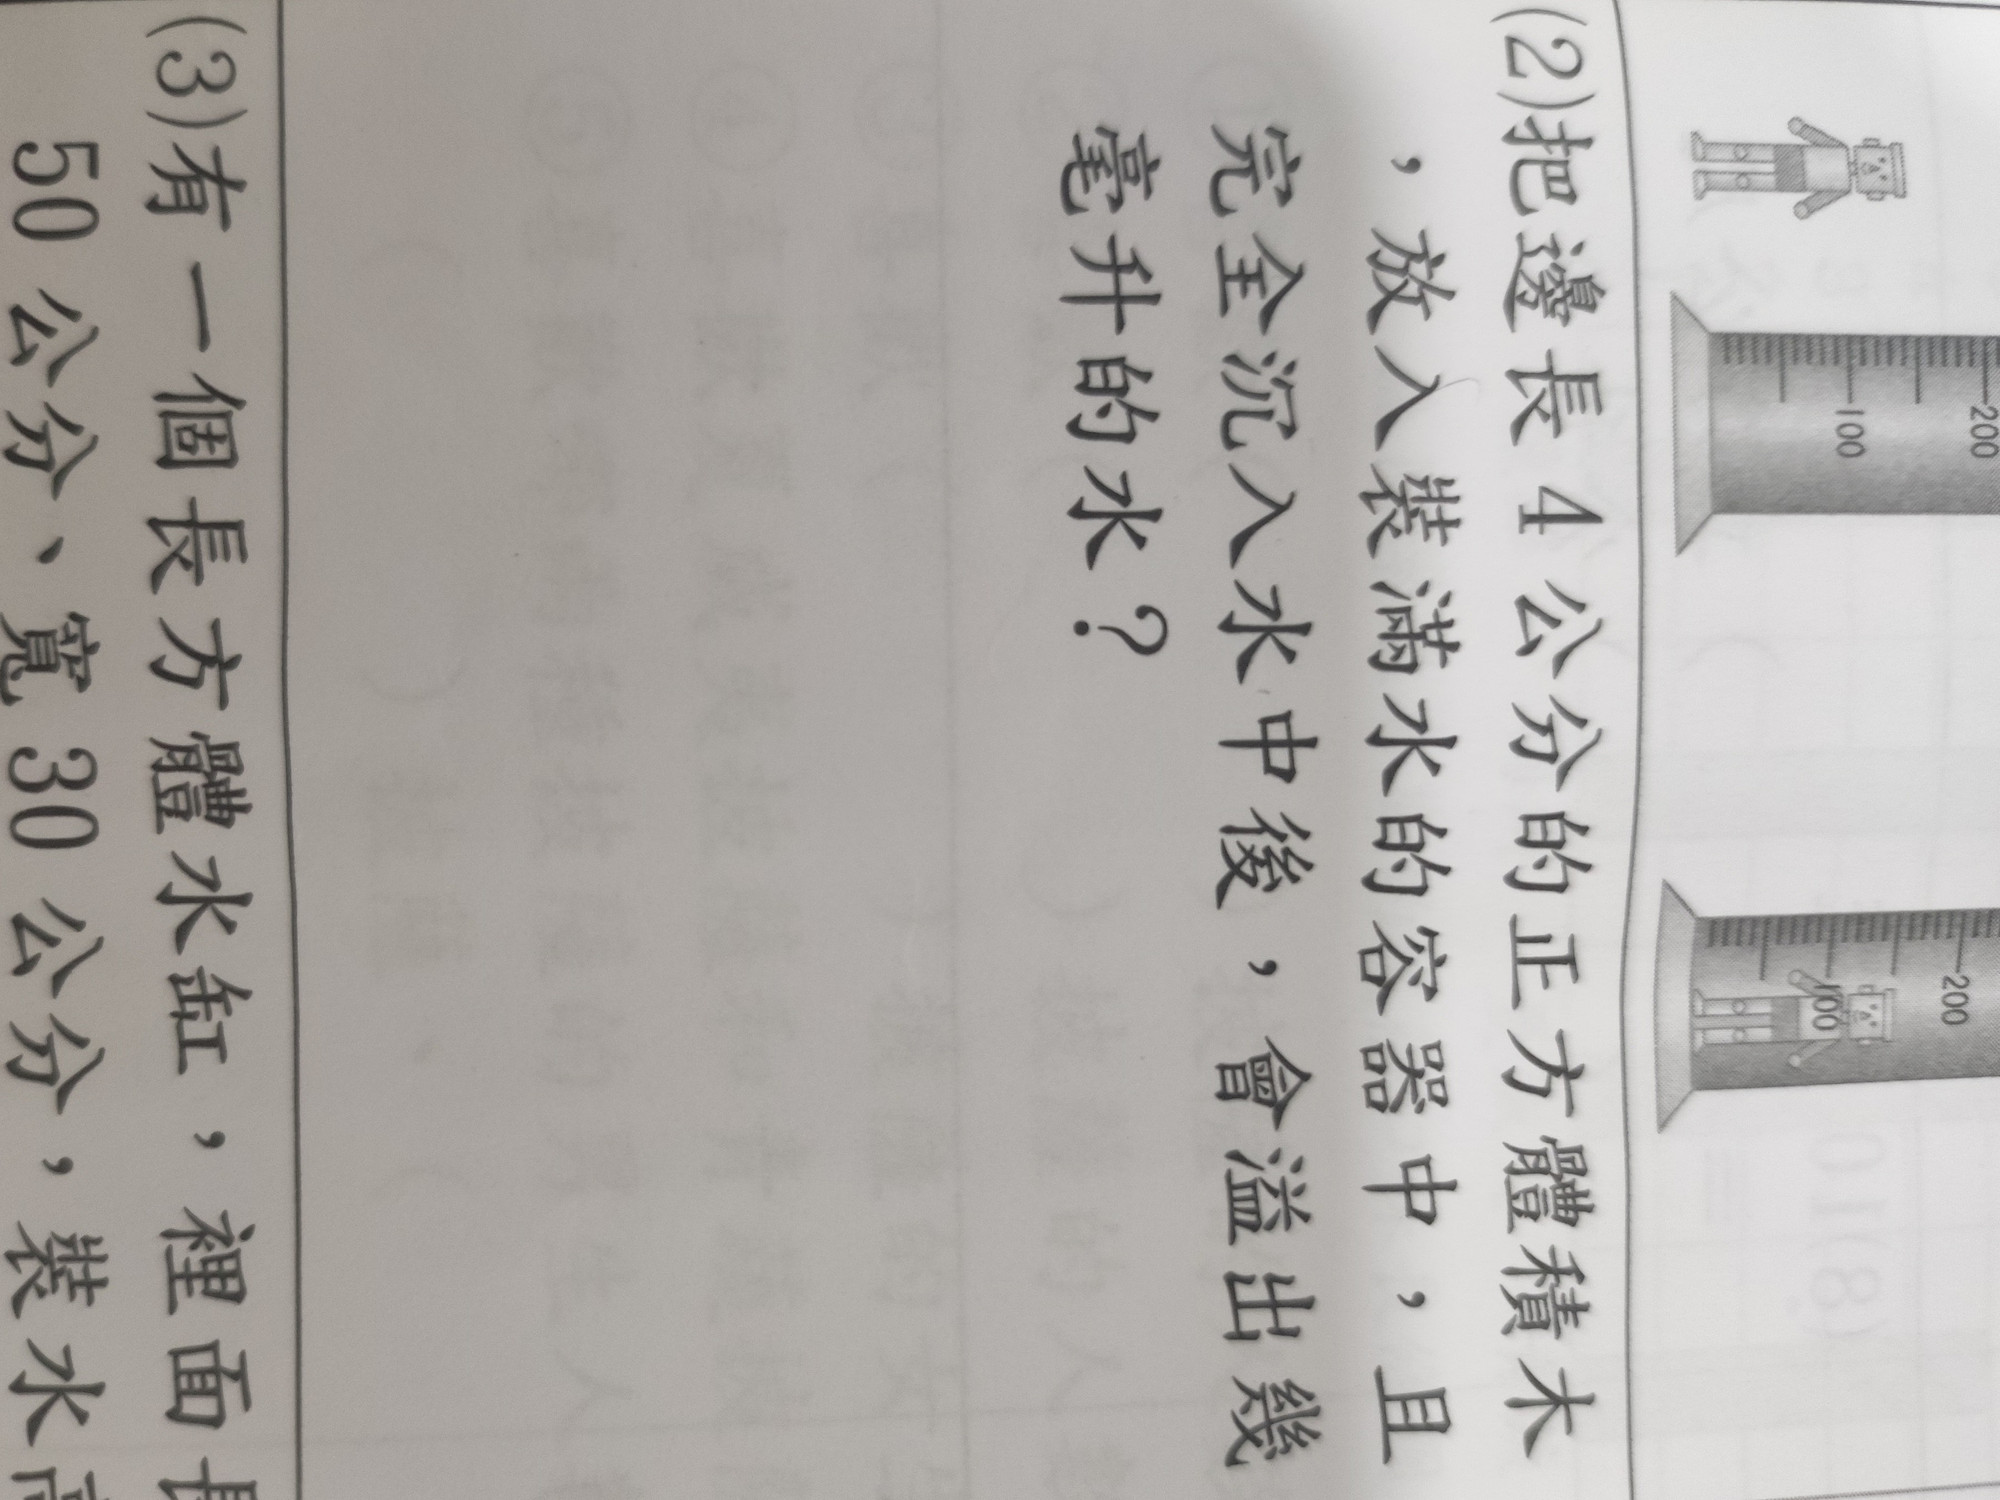 200
100
200
100
(2)把邊長 4 公分的正方體積木
，放入裝滿水的容器中，且
完全沉入水中後，會溢出幾
毫升的水？
(3)有一個長方體水缸，裡面長
50 公分、寬 30 公分，裝水高